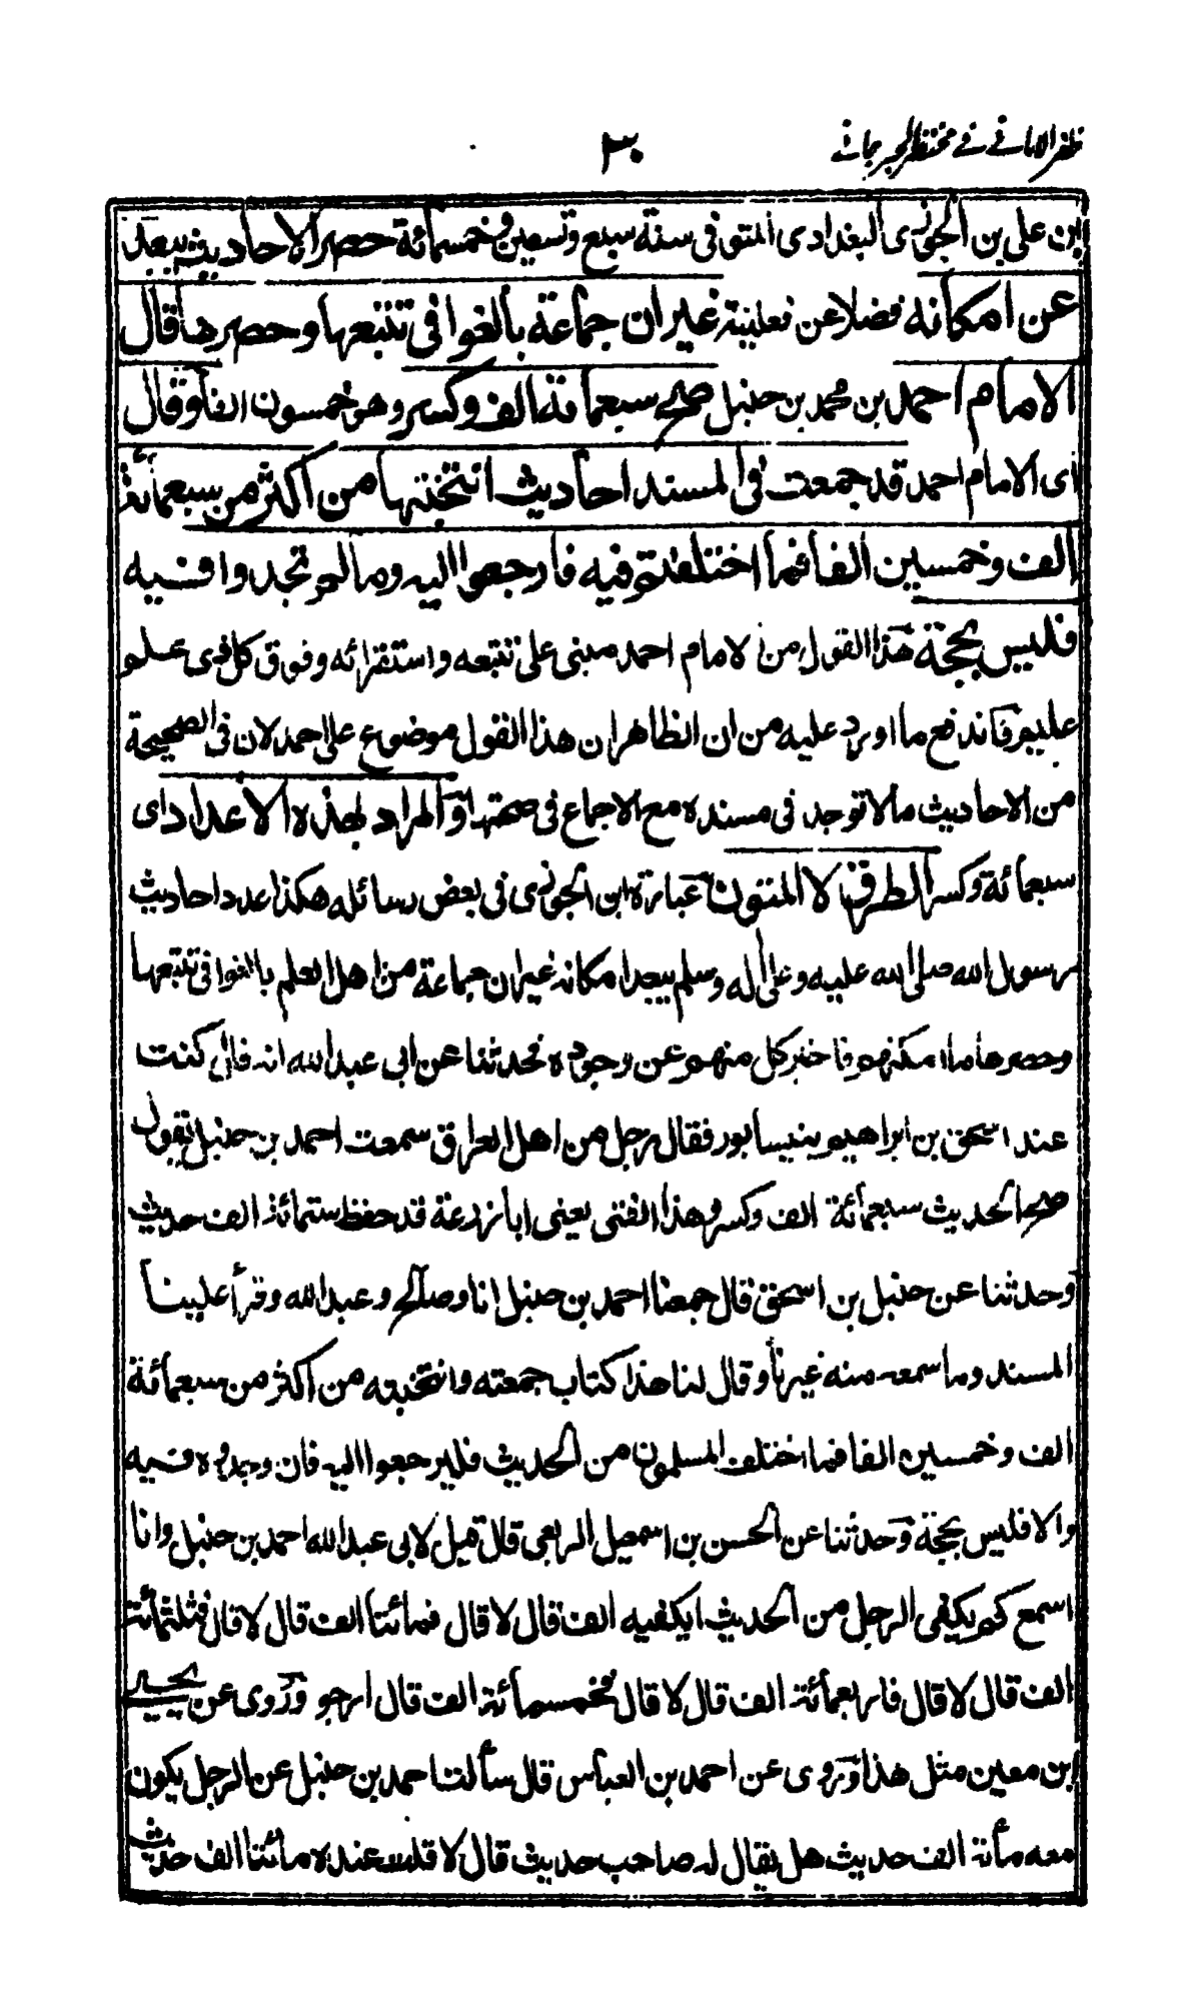 ظفر الامانى فى مختصر الجرجانى
٣٠
ابن على بن الجوزى البغدادى المتوفى فى سنة سبع وتسعين وخمسمائة حصر الاحاديث يبعد
عن امكانه فضلا عن فعليته غير ان جماعة بالغوا فى تتبعها وحصرها قال
الامام احمد بن محمد بن حنبل صح سبعمائة الف وكسر وهو خمسون الفا وقال
اى الامام احمد قد جمعت فى المسند احاديث انتخبتها من اكثر من سبعمائة
الف وخمسين الفا فما اختلفتم فيه فارجعوا اليه وما لم تجدوا فيه
فليس بحجة هذا القول من الامام احمد مبنى على تتبعه واستقرائه وفوق كل ذى علم
عليم فاندفع ما اورد عليه من ان الظاهر ان هذا القول موضوع على احمد لان فى الصحيحة
من الاحاديث ما لا توجد فى مسنده مع الاجماع فى صحتها والمراد بهذه الاعداد اى
سبعمائة وكسر الطرق لا المتون عبارة ابن الجوزى فى بعض رسائله هكذا عدد احاديث
رسول الله صلى الله عليه وعلى اله وسلم يبعد امكانه غير ان جماعة من اهل العلم بالغوا فى تتبعها
وحصرها ما امكنهم فاخبر كل منهم عن وجوده فحدثنا عن ابى عبد الله انه قال كنت
عند اسحق بن ابراهيم بنيسابور فقال رجل من اهل العراق سمعت احمد بن حنبل يقول
صح الحديث سبعمائة الف وكسر وهذا الفتى يعنى ابا زرعة قد حفظ ستمائة الف حديث
وحدثنا عن حنبل بن اسحق قال جمعنا احمد بن حنبل انا وصالح وعبد الله وقرأ علينا
المسند وما سمعه منه غيرنا وقال لنا هذا كتاب جمعته وانتخبته من اكثر من سبعمائة
الف وخمسين الفا فما اختلف المسلمون من الحديث فليرجعوا اليه فان وجدوه فيه
والا فليس بحجة وحدثنا عن الحسن بن اسمعيل الربعى قال قيل لابى عبد الله احمد بن حنبل وانا
اسمع كم يكفى الرجل من الحديث ايكفيه الف قال لا قال فمائتا الف قال لا قال فثلثمائة
الف قال لا قال فاربعمائة الف قال لا قال فخمسمائة الف قال ارجو وروى عن يحيى
ابن معين مثل هذا وروى عن احمد بن العباس قال سألت احمد بن حنبل عن الرجل يكون
معه مائة الف حديث هل يقال له صاحب حديث قال لا قلت عنده مائتا الف حديث